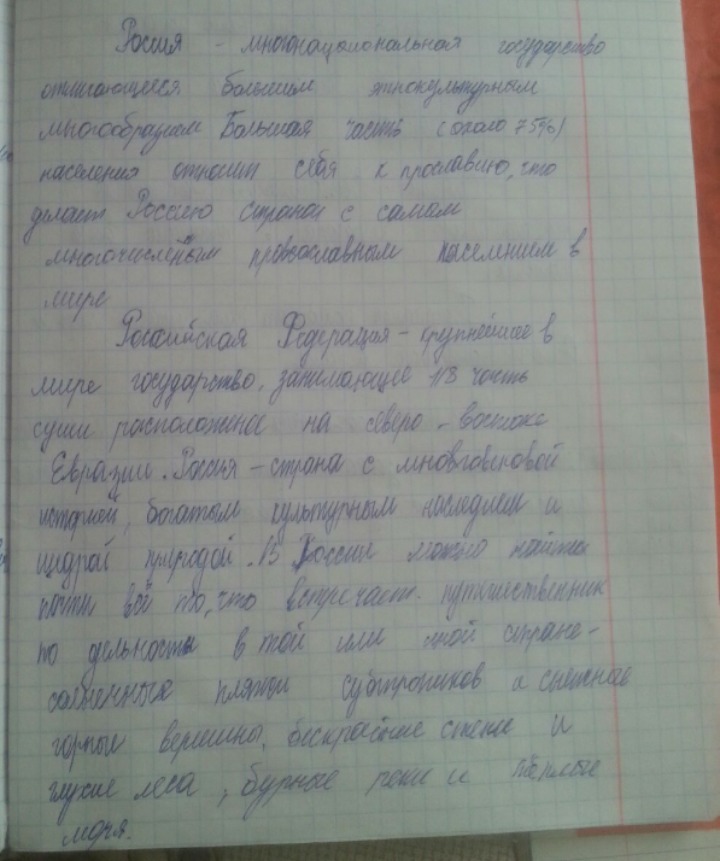 Россия - многонациональная государство
отличающиеся большим этнокультурным
многообразием Большая часть (около 75%)
населения относит себя к прославию, что
делает Россию страной с самым
многочисленым провославным населением в
мире
Российская Федерация - крупнейшее в
мире государство, занимающее 1/8 часть
суши расположеное на северо - востоке
Евразии. Россия - страна с многовековой
историей, богатым культурным наследием и
щедрой природой. В России можно найти
почти всё то, что встречает путешественник
по дельности в той или иной стране -
солнечные пляжи субтропиков и снежные
горные вершины, бескрайние степи и
глухие леса, бурные реки и тёплые
моря.